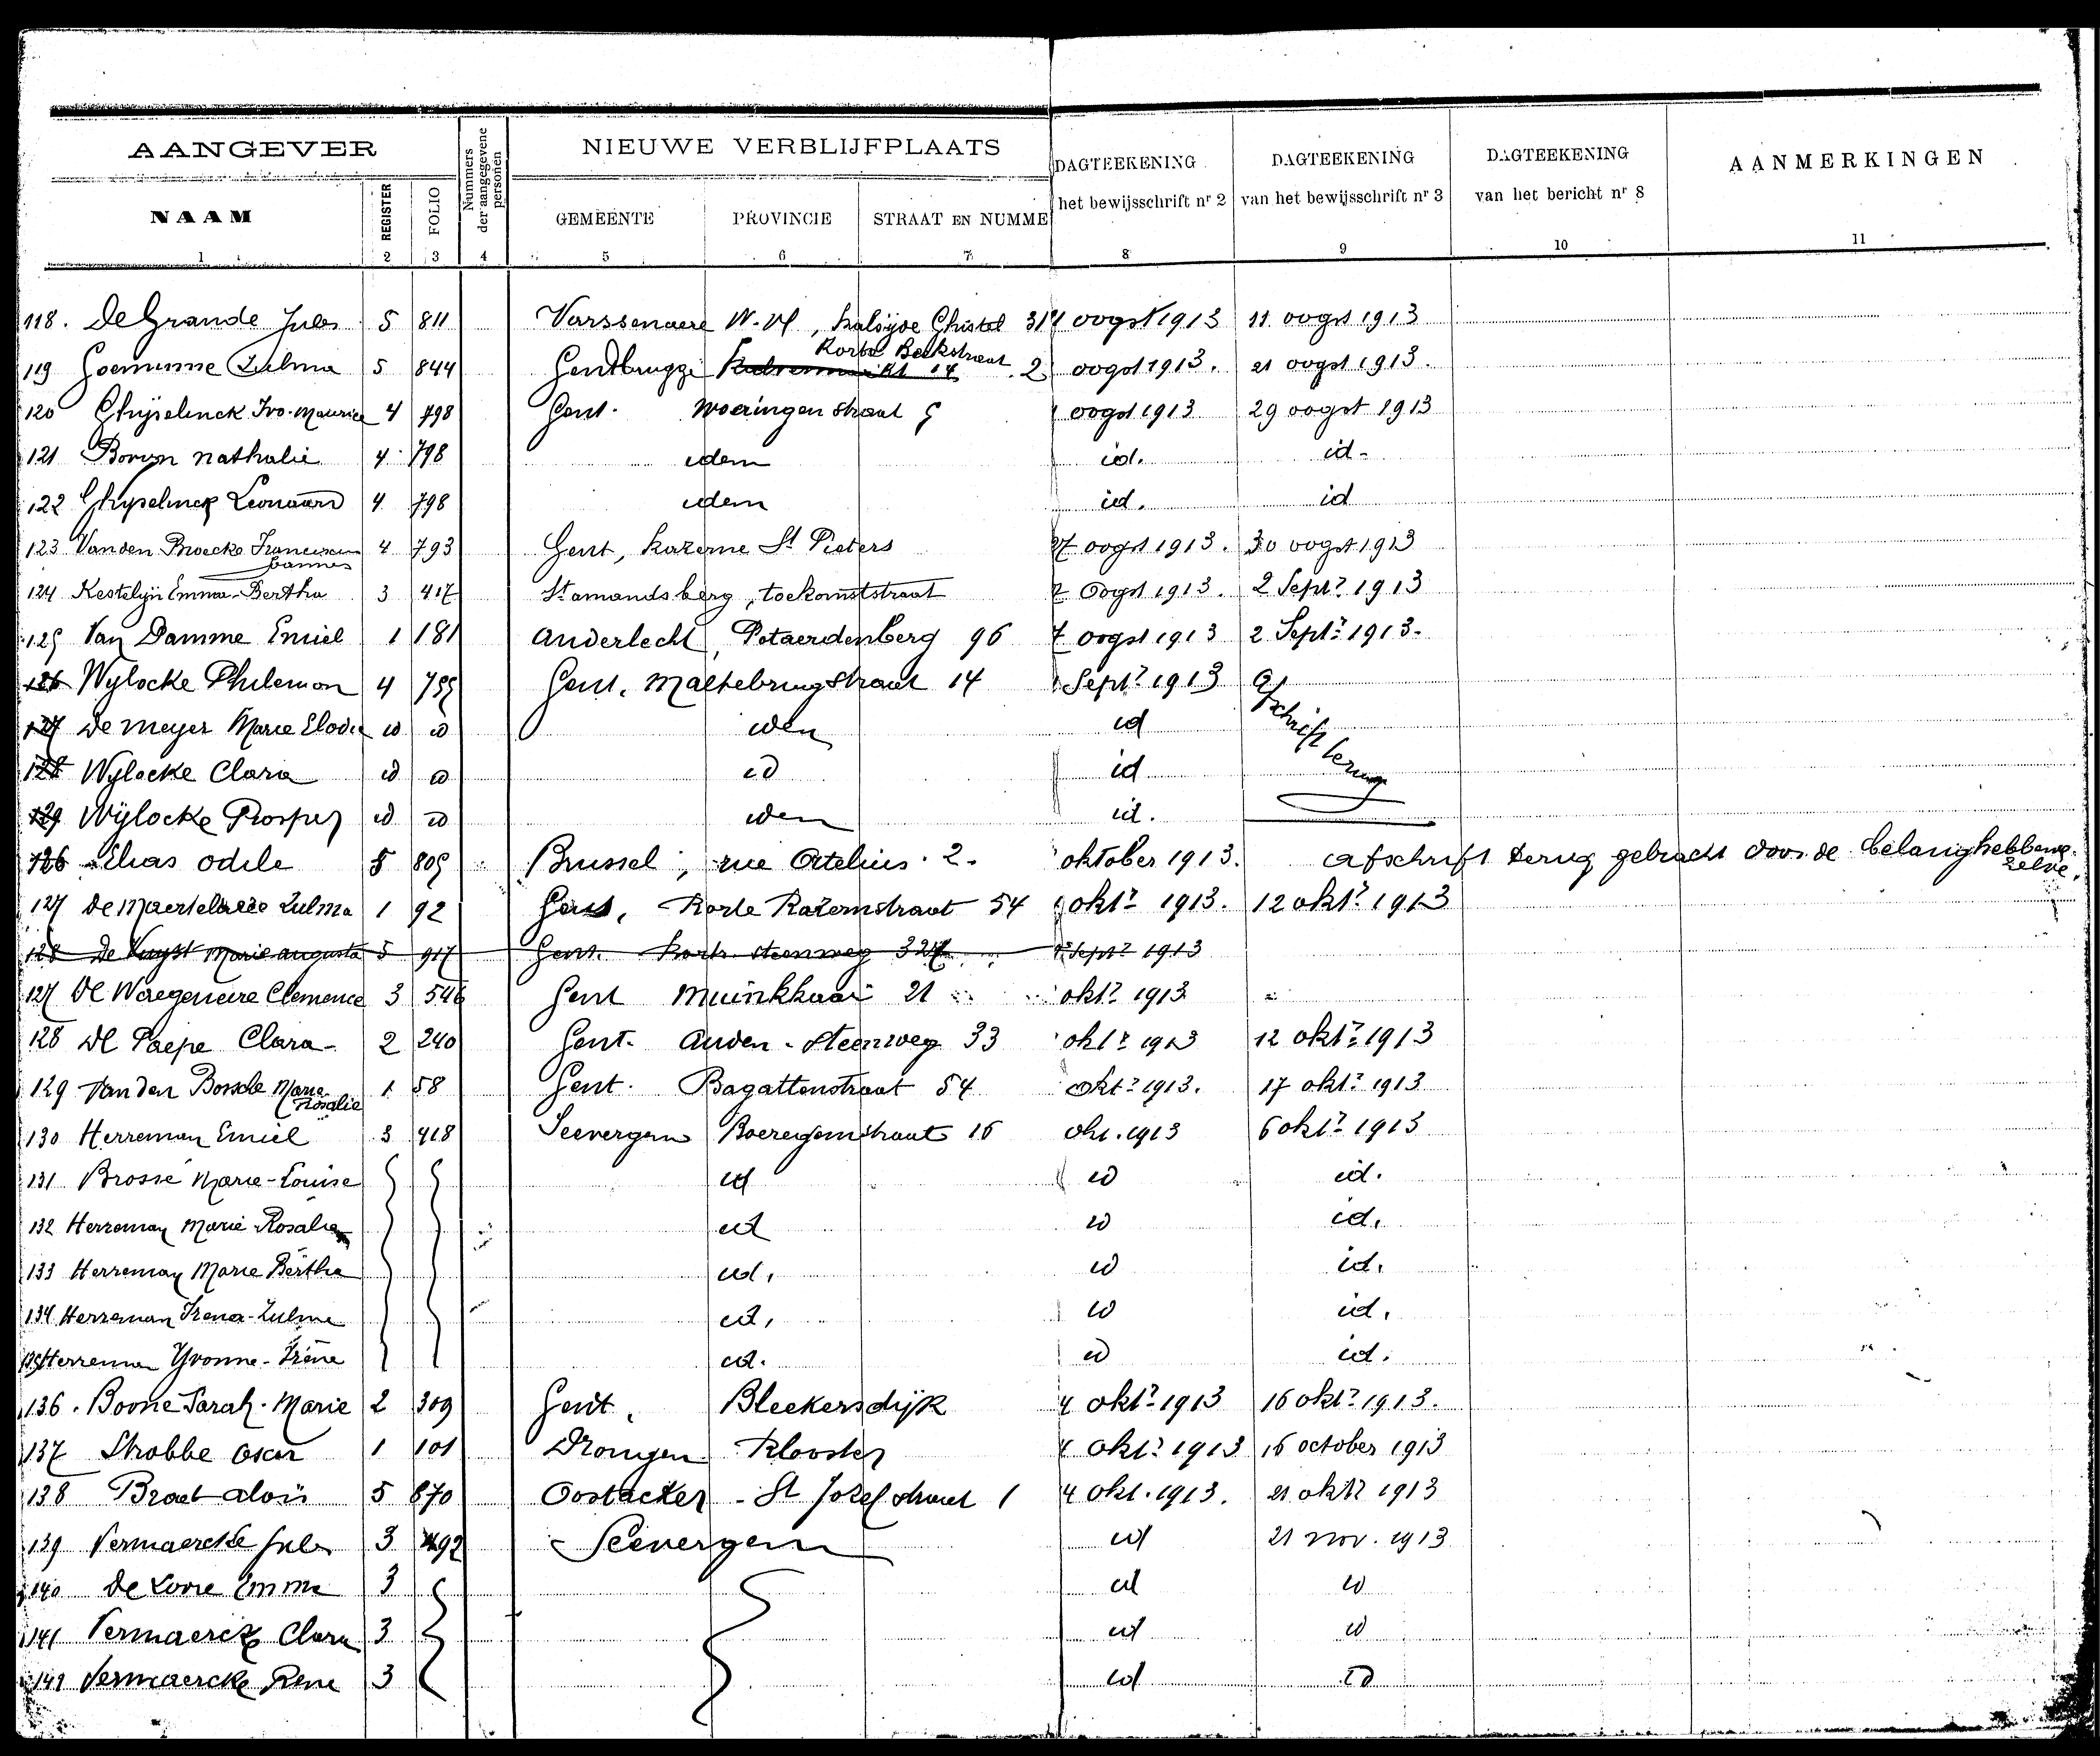 AANGEVER
NAAM
REGISTER
FOLIO
Nummers der aangegevene personen
NIEUWE VERBLIJFPLAATS
GEMEENTE PROVINCIE STRAAT EN NUMME
DAGTEEKENING
het bewijsschrift nr 2
DAGTEEKENING
van het bewijsschrift nr 3
DAGTEEKENING
van het bericht nr 8
AANMERKINGEN
1 2 3 4 5 6 7 8 9 10 11
118. De Grande Jules 5 811 Varssenaere W. Vl, Kalsijde Chistel 31 oogst 1913 11 oogst 1913
119 Goeminne Zulma 5 844 Gendbrugge Korte Beekstraat 2 oogst 1913. 21 oogst 1913.
120 Ghijselinck Ivo-Maurice 4 798 Gent. Woeringenstraat 5 oogst 1913 29 oogst 1913
121 Nathalie 4 798 idem id. id.
122 Ghyselinck Leonaard 4 798 idem id. id
123 Van den Broecke Franciscus Joannes 4 793 Gent, Kazerne St Pieters 27 oogst 1913. 30 oogst 1913
124 Kestelijn Emma-Bertha 3 417 St amandsberg, toekomststraat oogst 1913. 2 Septr 1913
125 Van Damme Emiel 1 181 Anderlecht, Potaerdenberg 96 oogst 1913 2 Septr 1913.
126 Wylocke Philemon 4 755 Gent. Maltebrugstraat 14 Septr 1913 Afschrift terug
127 De Meyer Marie Elodie id id idem id
128 Wylocke Clara id id id id
129 Wijlocke Prosper id id idem id.
126 Elias Odile 5 805 Brussel, rue Ortelius. 2. oktober 1913. Afschrift terug gebracht door de belanghebbende zelve.
127 De Maertelaere Zulma 1 92 Gent, Korte Kazernstraat 54 oktr 1913. 12 oktr 1913
128 De Kuyst Marie Augusta 5 917 Gent. Korte steenweg 327 Septr 1913
127 De Waegeneire Clemence 3 546 Gent Muinkkaai 21 oktr 1913
128 De Paepe Clara 2 240 Gent. Auden-Steenweg 33 oktr 1913 12 oktr 1913
129 Van den Bossche Marie Rosalie 1 58 Gent. Bagattenstraat 54 oktr 1913. 17 oktr 1913
130 Herreman Emiel 3 418 Seevergem Boeregemstraat 16 okt. 1913 6 oktr 1913
131 Brosse Marie-Louise id id id.
132 Herreman Marie Rosalie id id id.
133 Herreman Marie Bertha id. id id.
134 Herreman Irena-Zulma id. id id.
135 Herreman Yvonne-Irène id. id id.
136. Boone Sarah-Marie 2 309 Gent. Bleekersdijk 4 oktr 1913 16 oktr 1913.
137 Strobbe Oscar 1 101 Drongen Klooster 4 oktr 1913 16 october 1913
138 Braet Aloïs 5 870 Oostacker - St Jozefstraat 1 4 okt. 1913. 21 oktr 1913
139 Vermaercke Jules 3 492 Seevergem id 21 nov. 1913
140 De Loore Emma 3 id id
141 Vermaercke Clara 3 id id
Vermaercke Rene 3 id id